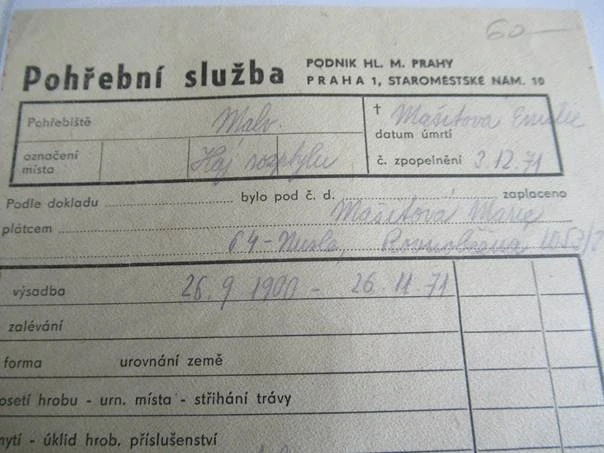 60—
Pohřební služba
PODNIK HL. M. PRAHY
PRAHA 1, STAROMĚSTSKÉ NÁM. 10
Pohřebiště Malv.
† Mašitová Emilie
datum úmrtí
označení místa Háj rozptylu
č. zpopelnění 3.12.71
Podle dokladu bylo pod č. d. zaplaceno
plátcem Mašitová Marie
64-Nusle,
výsadba 26.9 1900 - 26.11 71
zalévání
forma urovnání země
osetí hrobu - urn. místa - stříhání trávy
mytí - úklid hrob. příslušenství